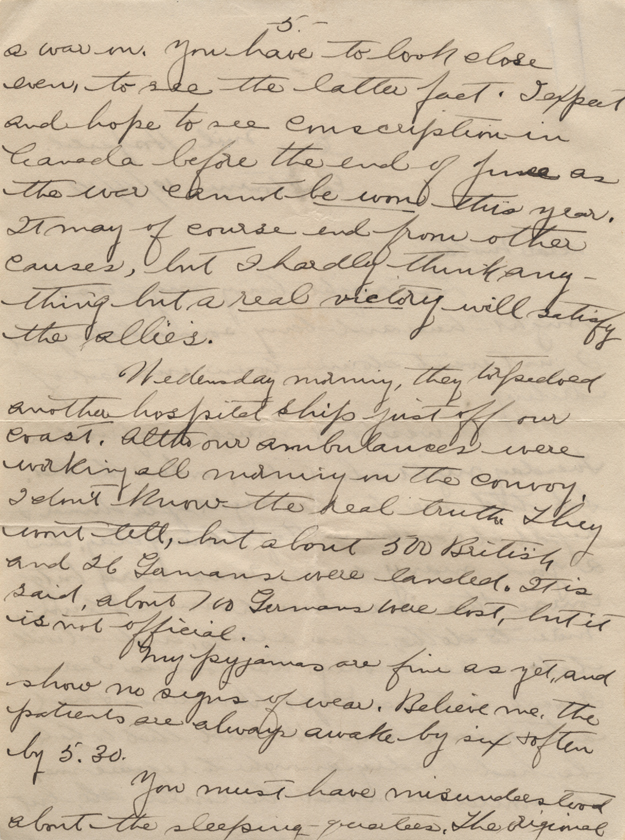 -5.-
a war on. You have to look close
even, to see the latter fact. I expect
and hope to see conscription in
Canada before the end of June as
the war cannot be won this year.
It may of course end from other
causes, but I hardly think any-
thing but a real victory will satisfy
the allies.
Wedensday morning, they torpedoed
another hospital ship just off our
coast. Altho our ambulances were
working all morning on the convoy,
I don't know the real truth. They
wont tell, but about 500 British
and 26 Germans were landed. It is
said, about 100 Germans were lost, but it
is not official.
My pyjamas are fine as yet, and
show no signs of wear. Believe me, the
patients are always awake by six & often
by 5.30.
You must have misunderstood
about the sleeping quarters. The original